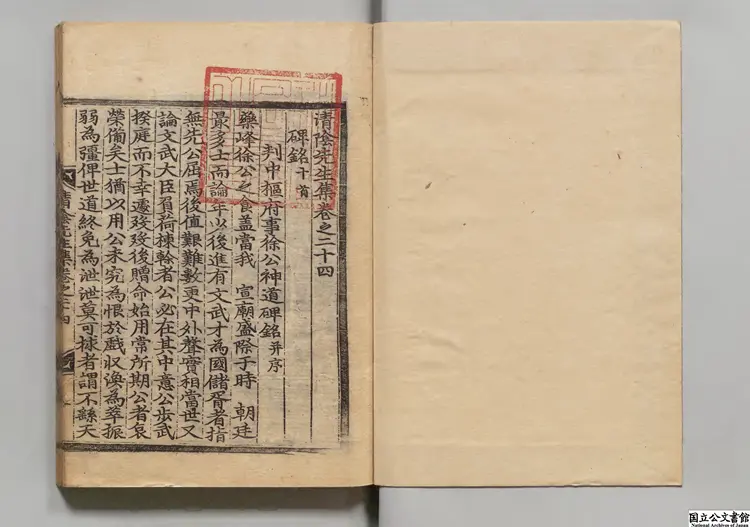 清陰先生集卷之二十四
碑銘十首
判中樞府事徐公神道碑銘并序
藥峰徐公之食蓋當我 宣廟盛際于時 朝廷
最多士而論年以後進有文武才為國儲胥者指
無先公屈焉後值艱難數更中外聲實相當世又
論文武大臣肩荷揀輪者公必在其中意公步武
揆庭而不幸遽歿歿後贈命始用常所期公者哀
榮備矣士猶以用公未究為恨於戲收渙為萃振
弱為彊俾世道終免為泄泄莫可捄者謂不繇天
清陰先生集卷之二十四
国立公文書館
National Archives of Japan